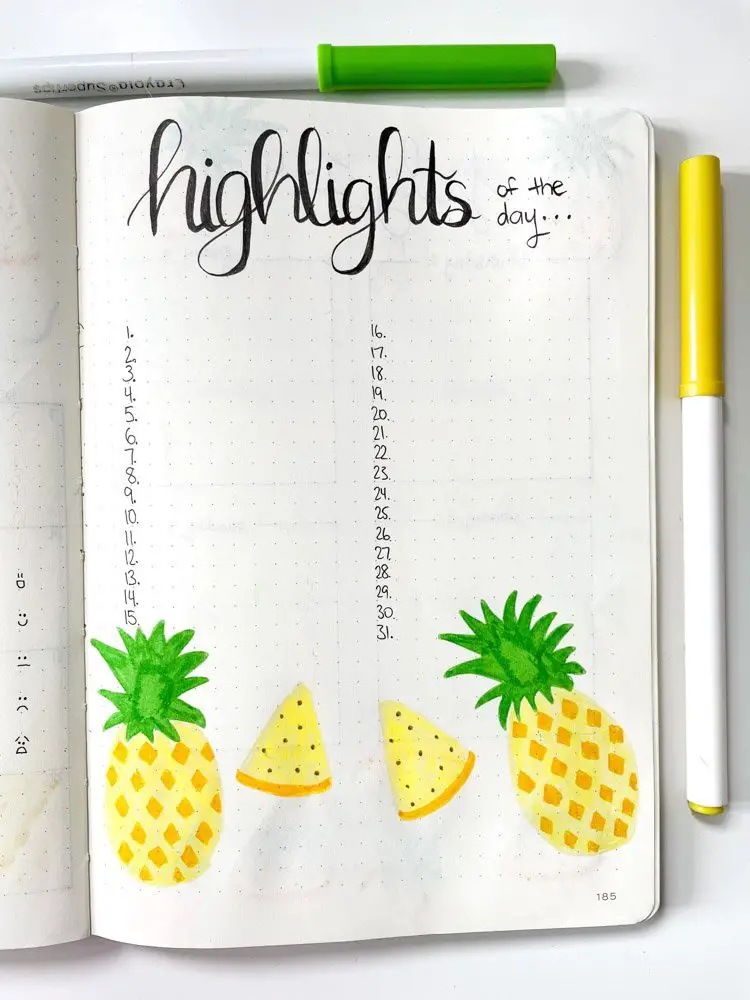 Crayola® Supertips
highlights
of the
day...
1.
2.
3.
4.
5.
6.
7.
8.
9.
10.
11.
12.
13.
14.
15.
16.
17.
18.
19.
20.
21.
22.
23.
24.
25.
26.
27.
28.
29.
30.
31.
D:
C:
|:
):
D:;
185